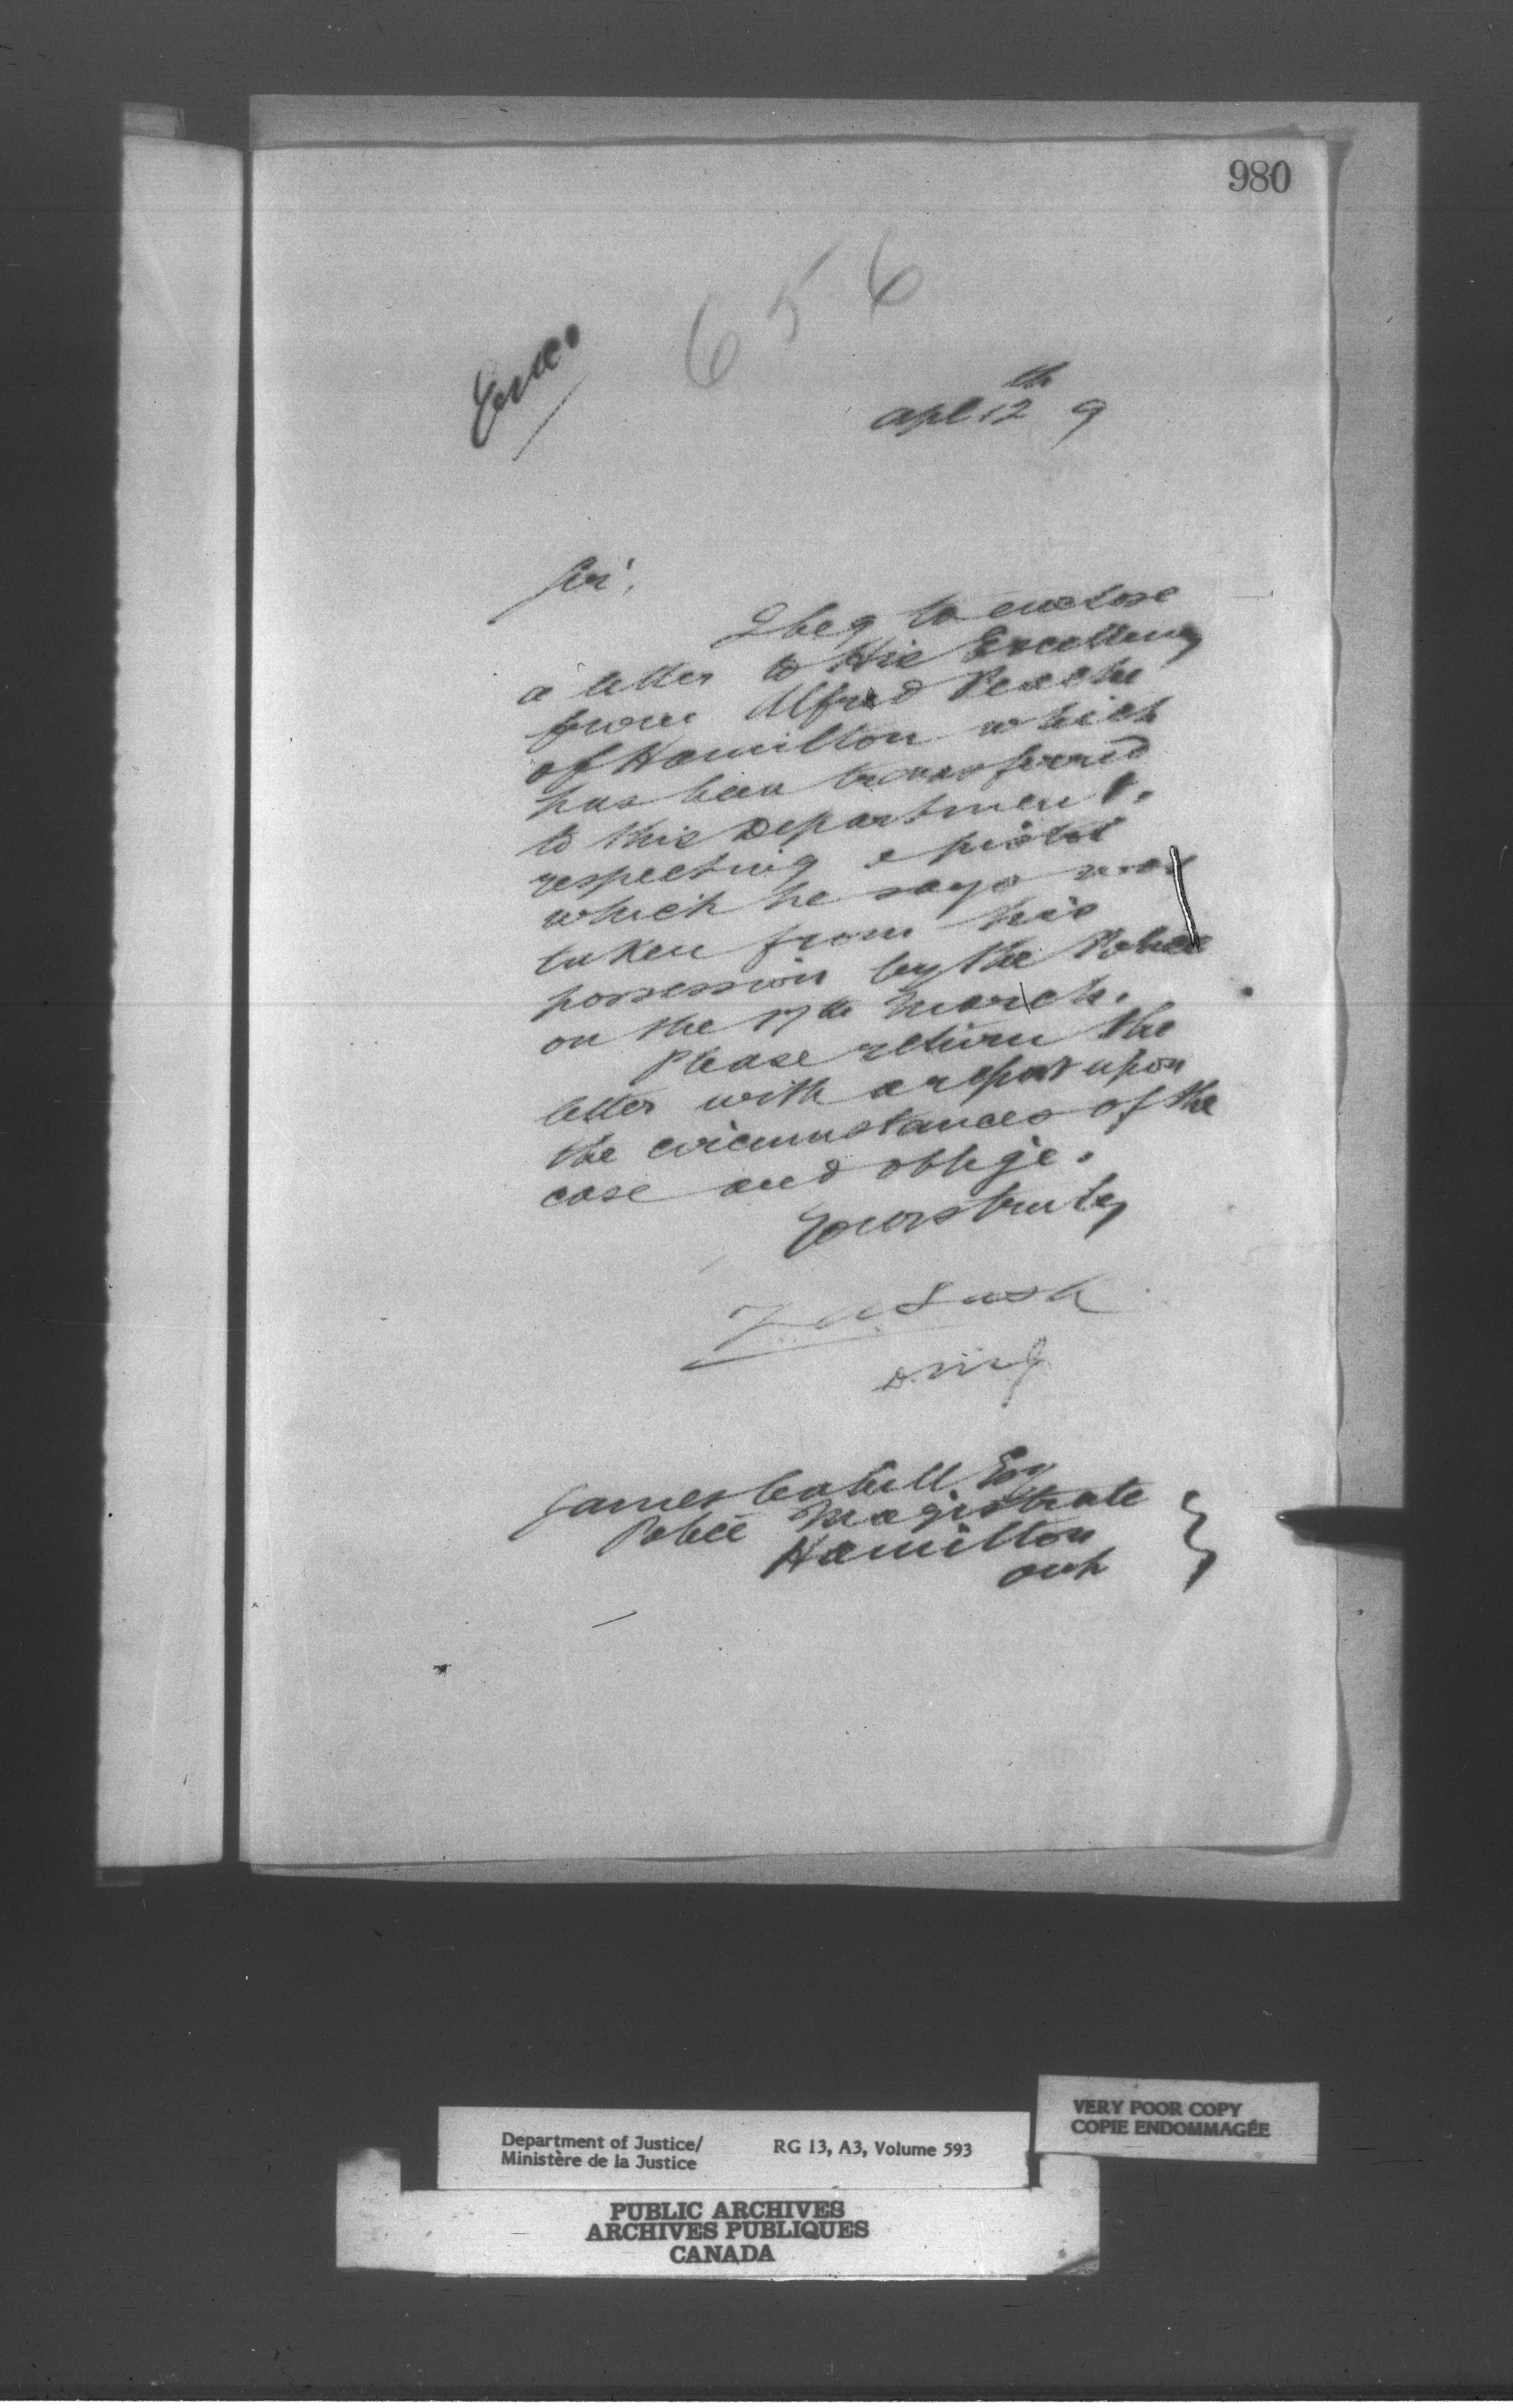 980
656
Enc.
Apl 12th 9
Sir,
I beg to enclose
a letter to His Excellency
from Alfred Peache
of Hamilton which
has been transferred
to this Department.
respecting a pistol
which he says was
taken from his
possession by the Police
on the 17th March.
Please return the
letter with a report upon
the circumstances of the
case and oblige.
Yours truly
Z A Lash
D.M.J.
James Cahill Esq
Police Magistrate
Hamilton
Ont
VERY POOR COPY
COPIE ENDOMMAGÉE
Department of Justice/
Ministère de la Justice
RG 13, A3, Volume 593
PUBLIC ARCHIVES
ARCHIVES PUBLIQUES
CANADA